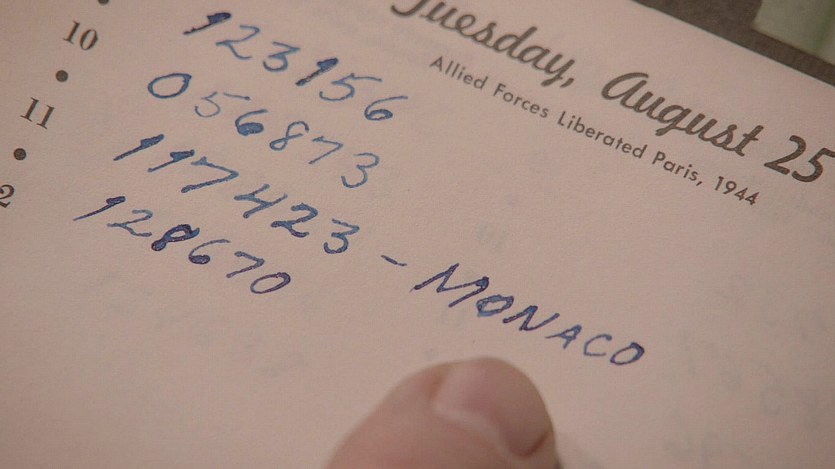 Tuesday, August 25
Allied Forces Liberated Paris, 1944
10
11
2
123156
056873
117423 - MONACO
128670